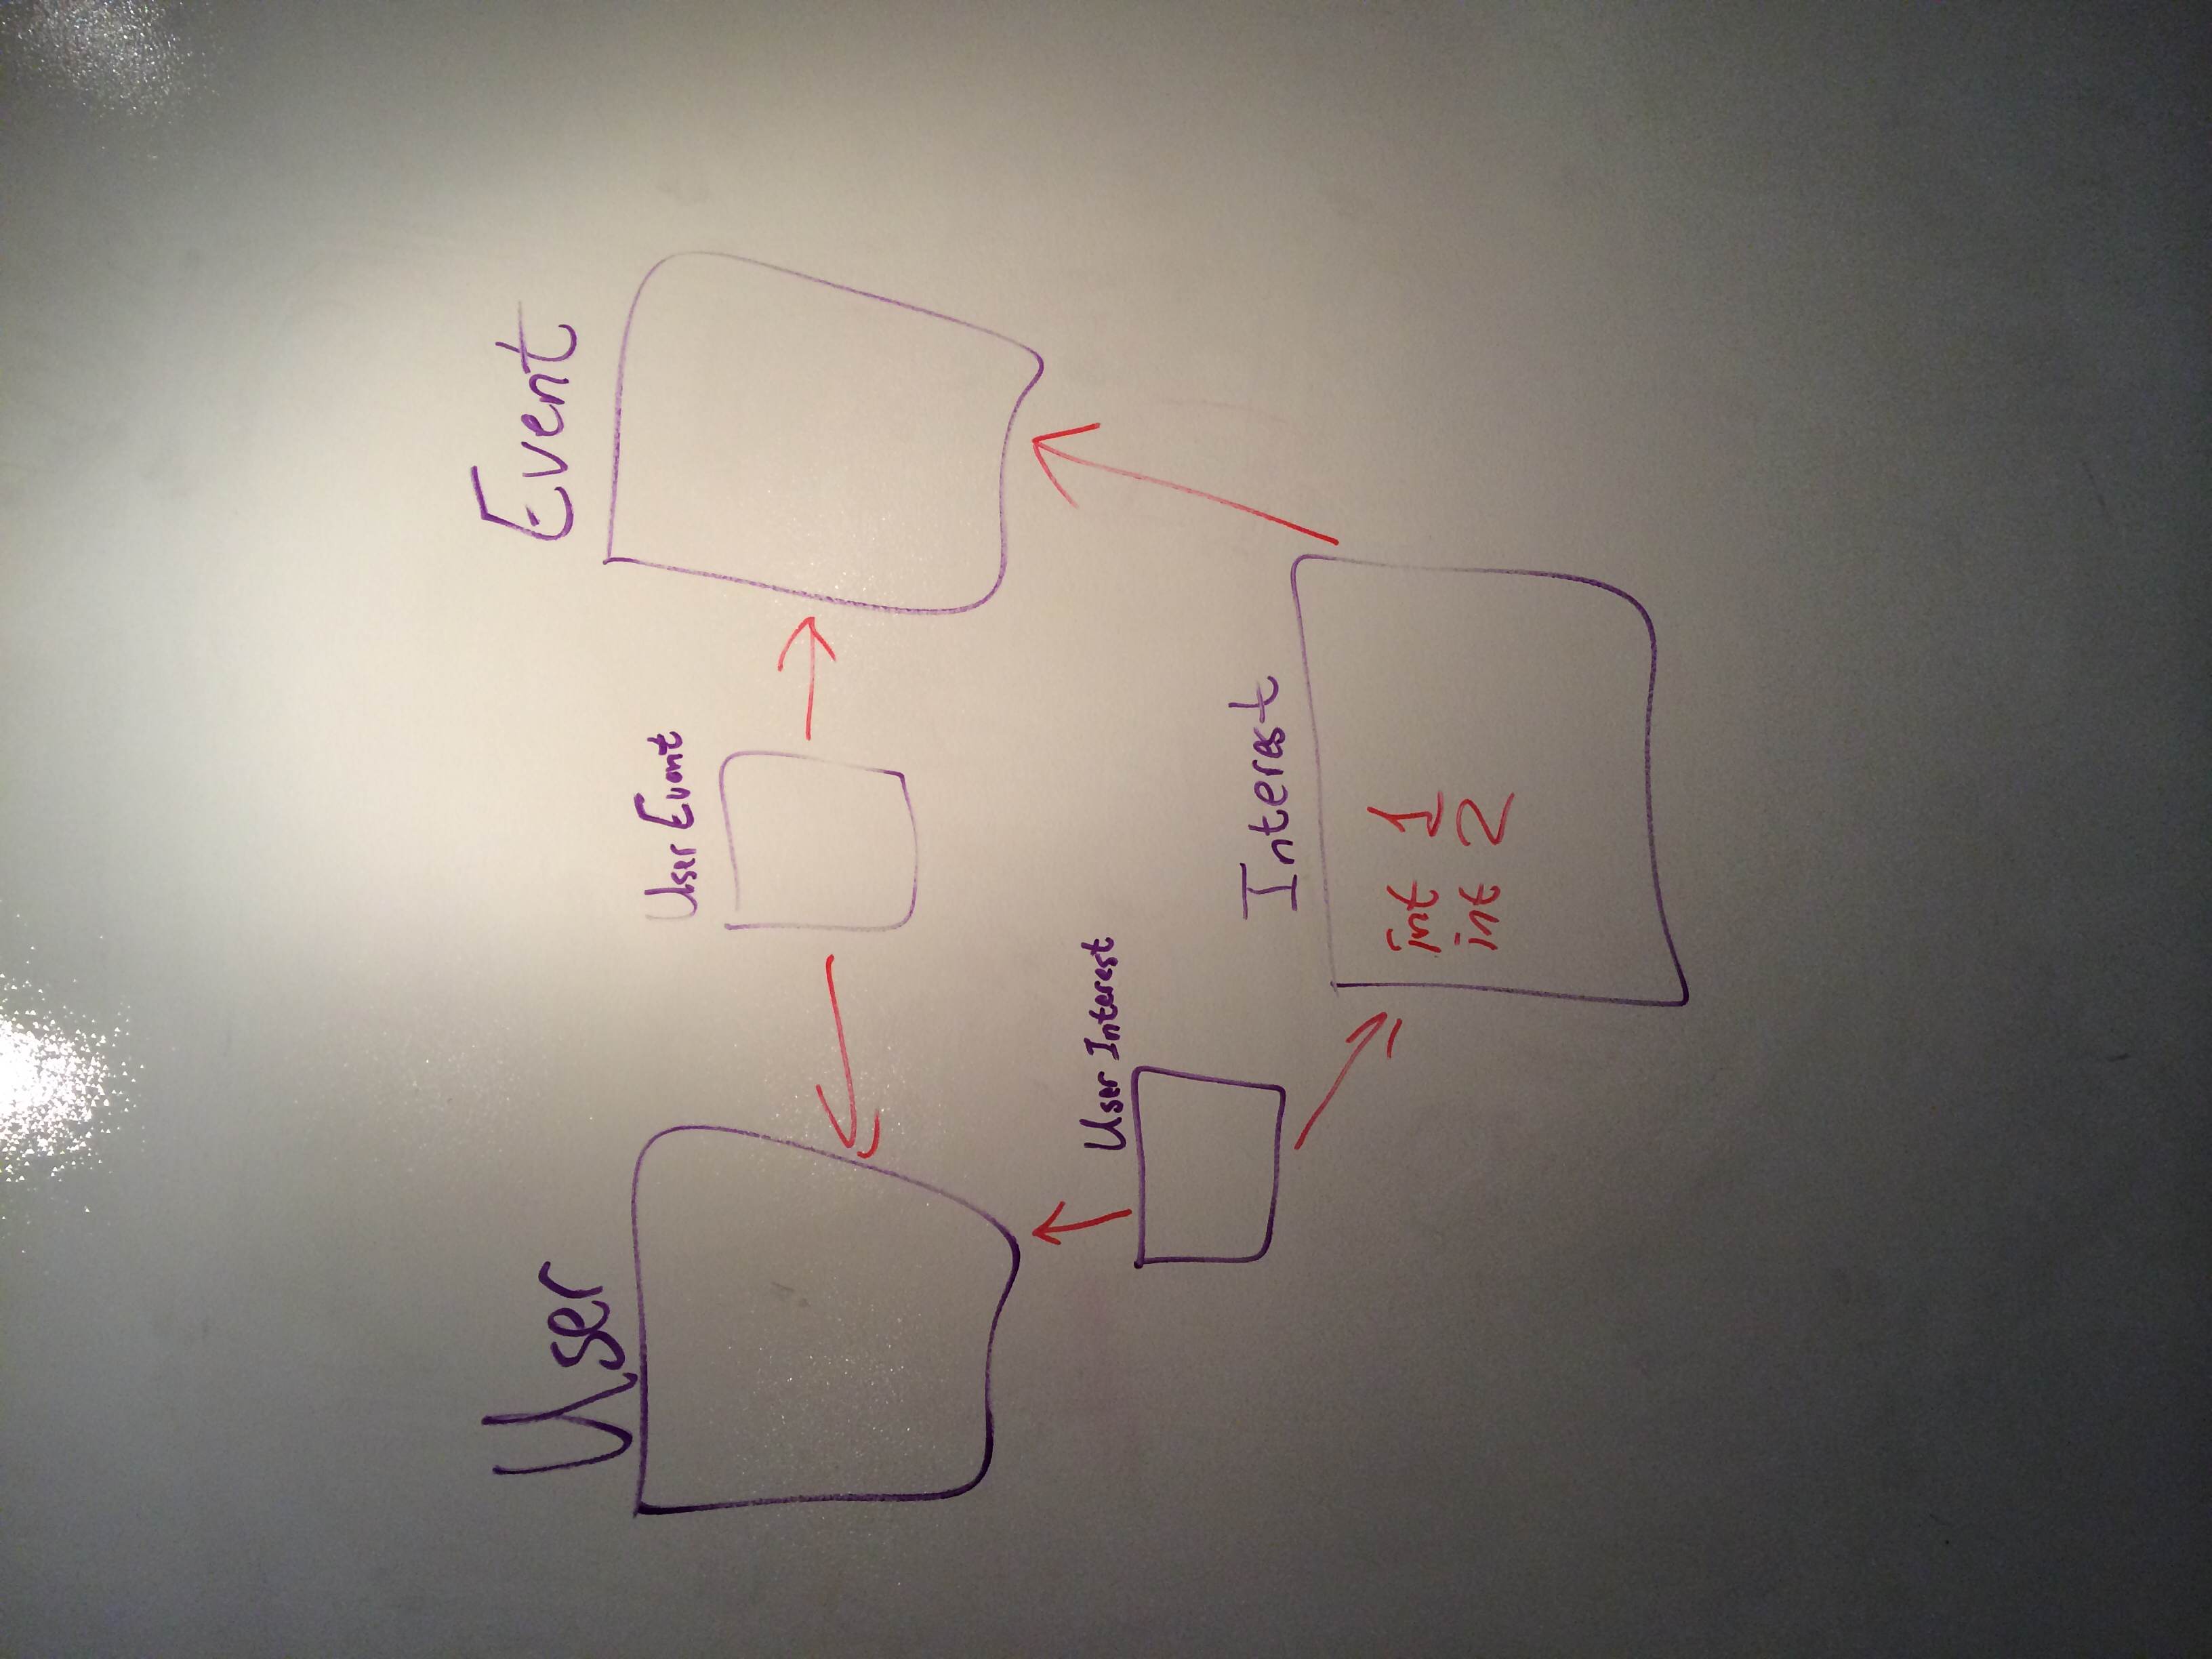 User
Event
User Event
User Interest
Interest
int 1
int 2